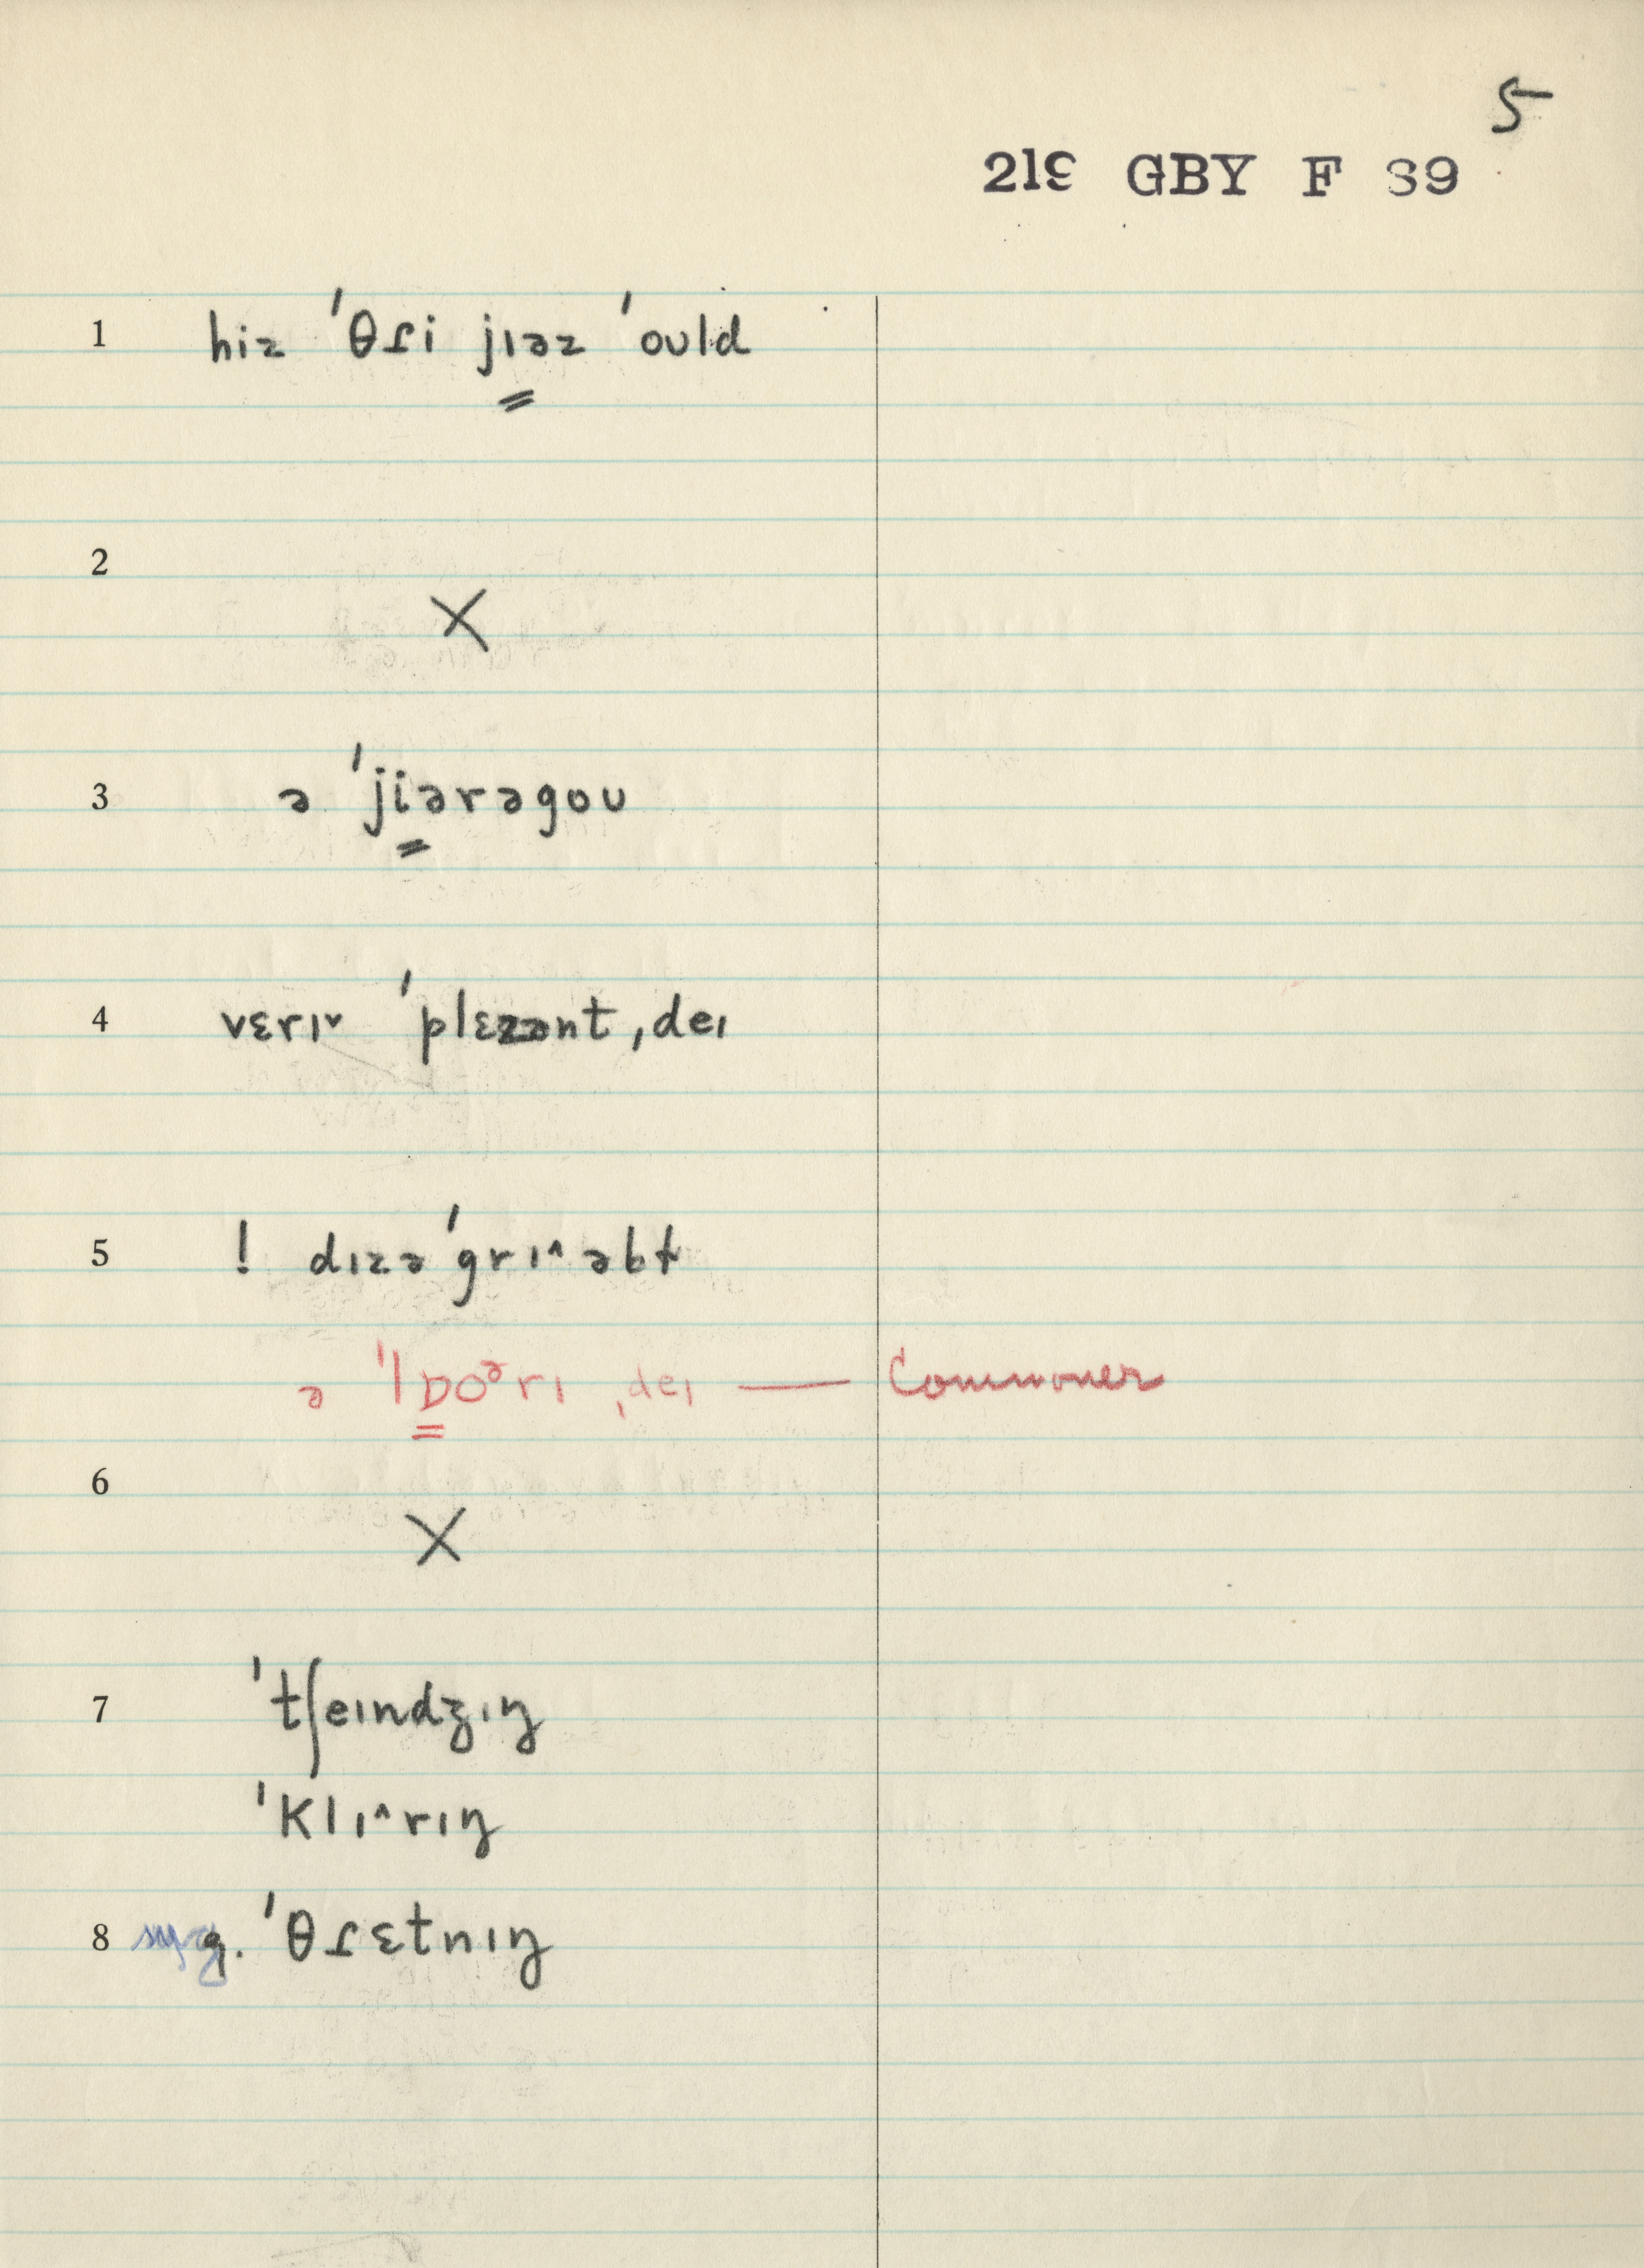 5
219 GBY F 89
1 hiz ˈθɾi jɪəz ˈoʊld
2
X
3 ə ˈjiərəgoʊ
4 vɛrɪ˅ ˈplɛzənt ˌdeɪ
5 ! dɪzəˈgrɪ˄əbɫ
ə ˈlɒoᵊrɪ ˌdeɪ — Commoner
6
X
7 ˈtʃeɪndʒɪŋ
ˈklɪ˄rɪŋ
8 sug. ˈθɾɛtnɪŋ